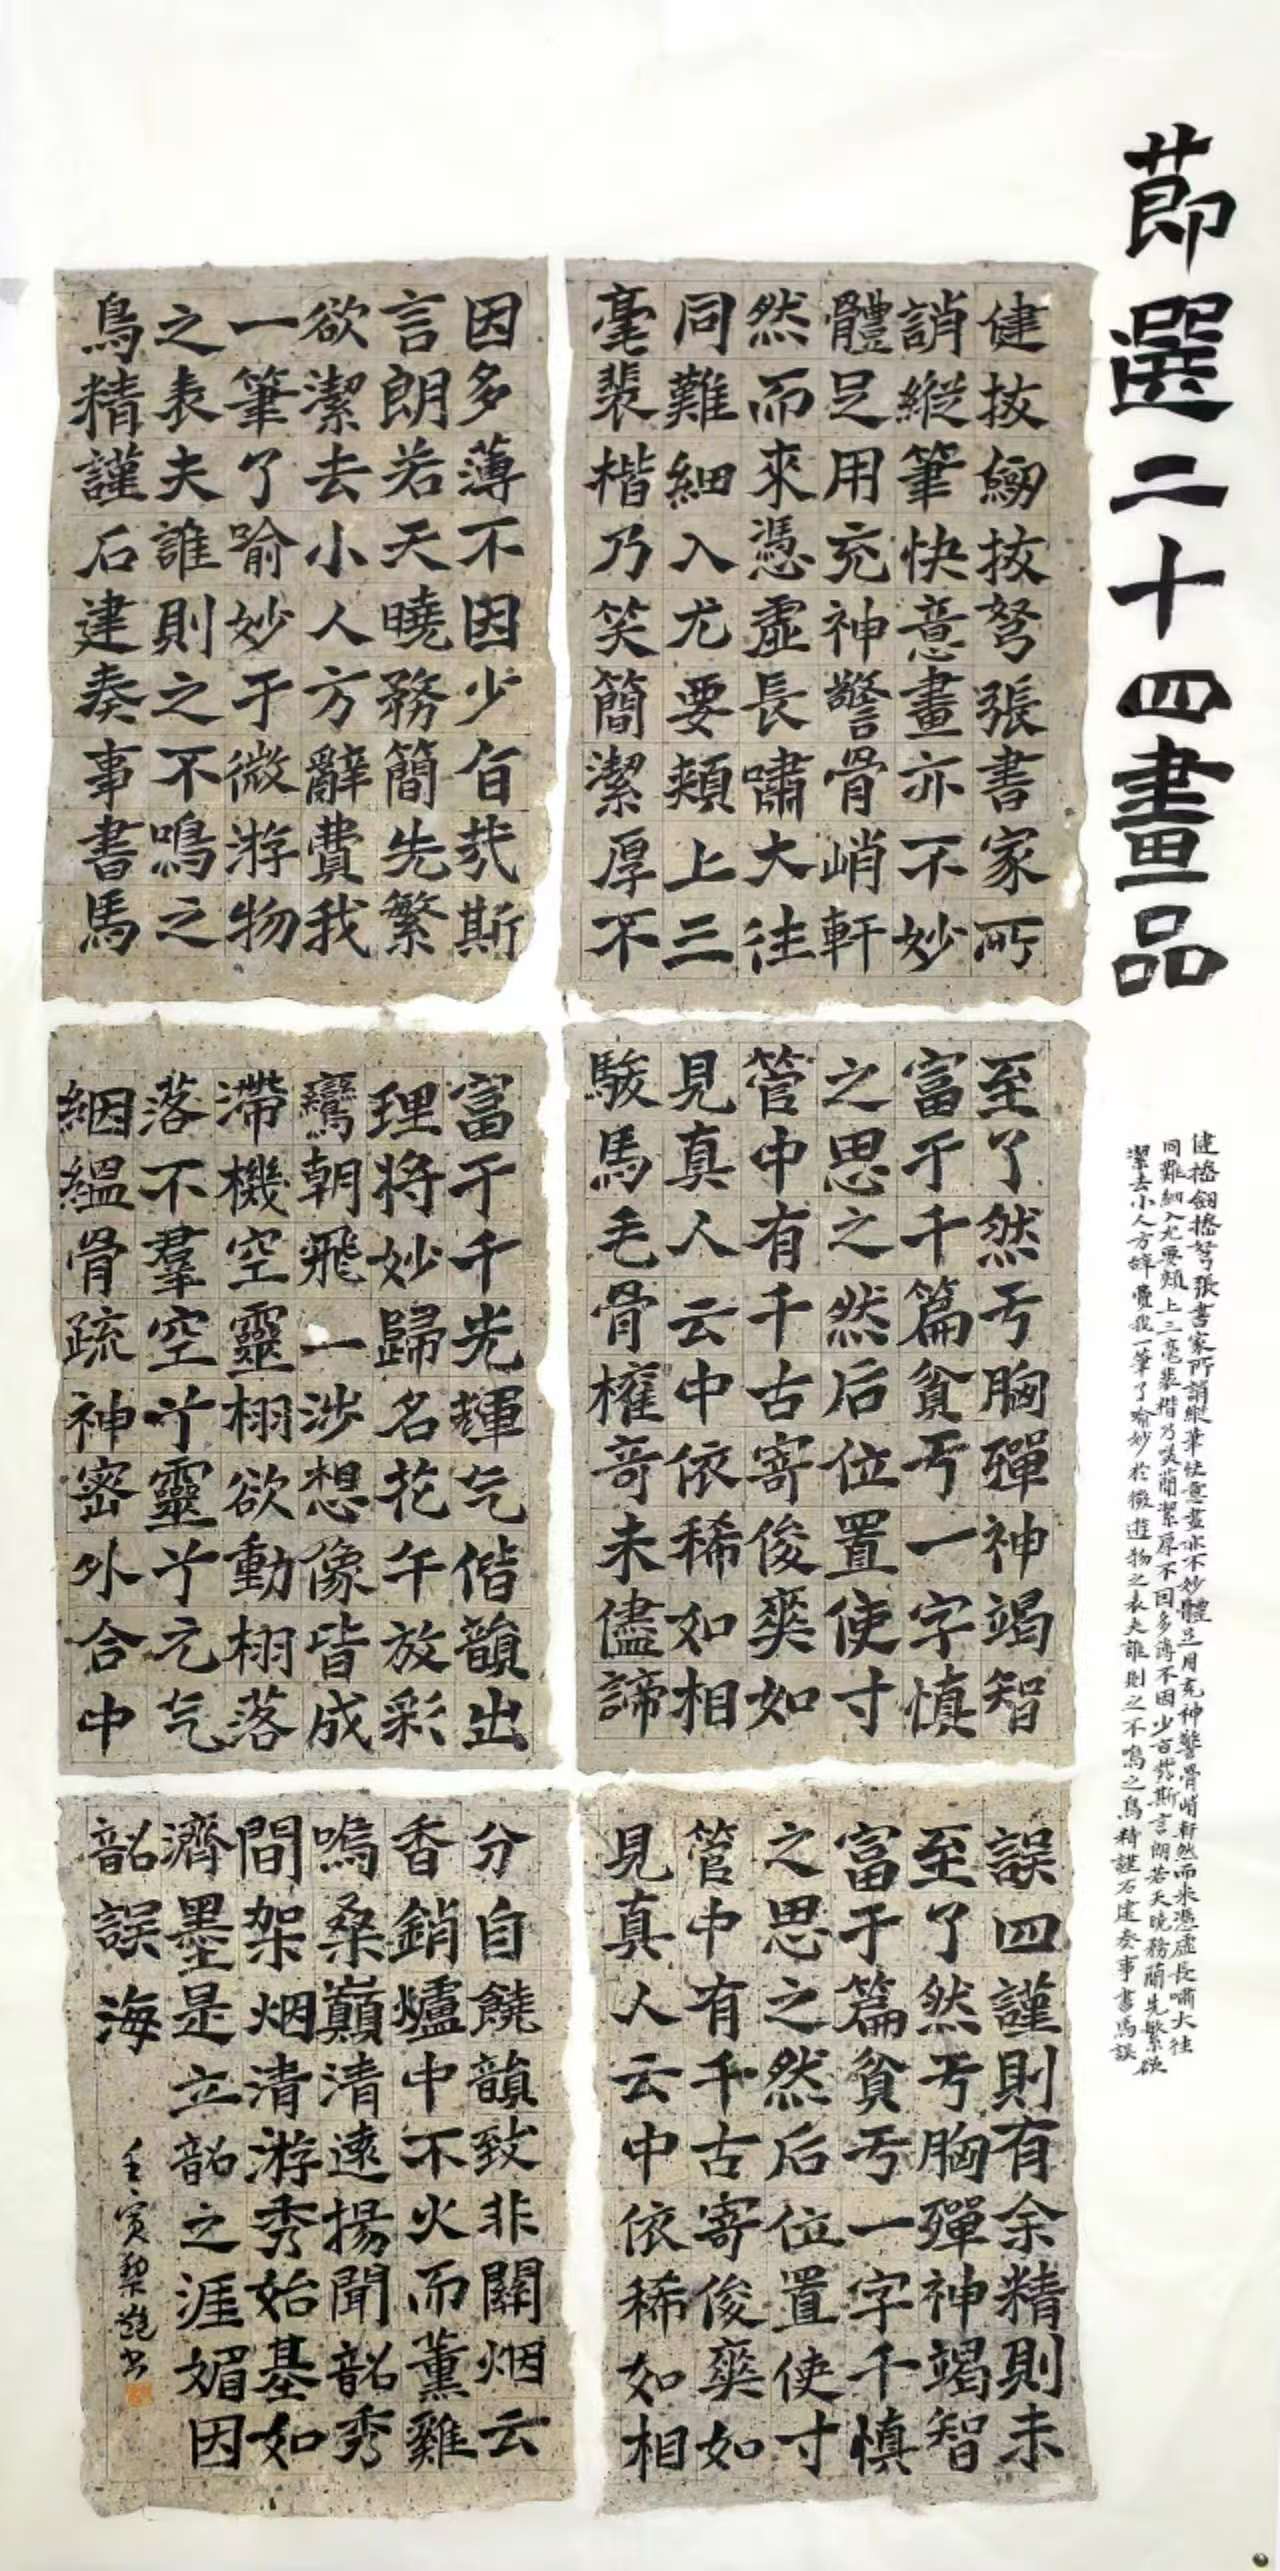 莭選二十四畫品
健拔劒拔弩張書家所誚縱筆快意畫亦不妙體足用充神警骨峭軒然而來憑虛長嘯大往
同難細入尤要頰上三毫裴楷乃笑簡潔厚不因多薄不因少旨哉斯言朗若天曉務簡先繁欲
潔去小人方辭費我一筆了喻妙於微遊物之表夫誰則之不鳴之鳥精謹石建奏事書馬誤
健拔劒拔弩張書家所
誚縱筆快意畫亦不妙
體足用充神警骨峭軒
然而來憑虛長嘯大往
同難細入尤要頰上三
毫裴楷乃笑簡潔厚不
因多薄不因少旨哉斯
言朗若天曉務簡先繁
欲潔去小人方辭費我
一筆了喻妙于微游物
之表夫誰則之不鳴之
鳥精謹石建奏事書馬
至了然于胸殫神竭智
富于千篇貧于一字慎
之思之然后位置使寸
管中有千古寄俊爽如
見真人云中依稀如相
駿馬毛骨權奇未儘諦
富于千光輝气偕韻出
理將妙歸名花午放彩
鸞朝飛一涉想像皆成
滯機空靈栩欲動栩落
落不羣空兮靈兮元气
絪縕骨疏神密外合中
誤四謹則有余精則未
至了然于胸殫神竭智
富于篇貧于一字千慎
之思之然后位置使寸
管中有千古寄俊爽如
見真人云中依稀如相
分自饒韻致非關烟云
香銷爐中不火而薰雞
鳴桑巔清遠揚聞韶秀
間架烟清游秀始基如
濟墨是立韶之涯媚因
韶誤海
壬寅黎超書